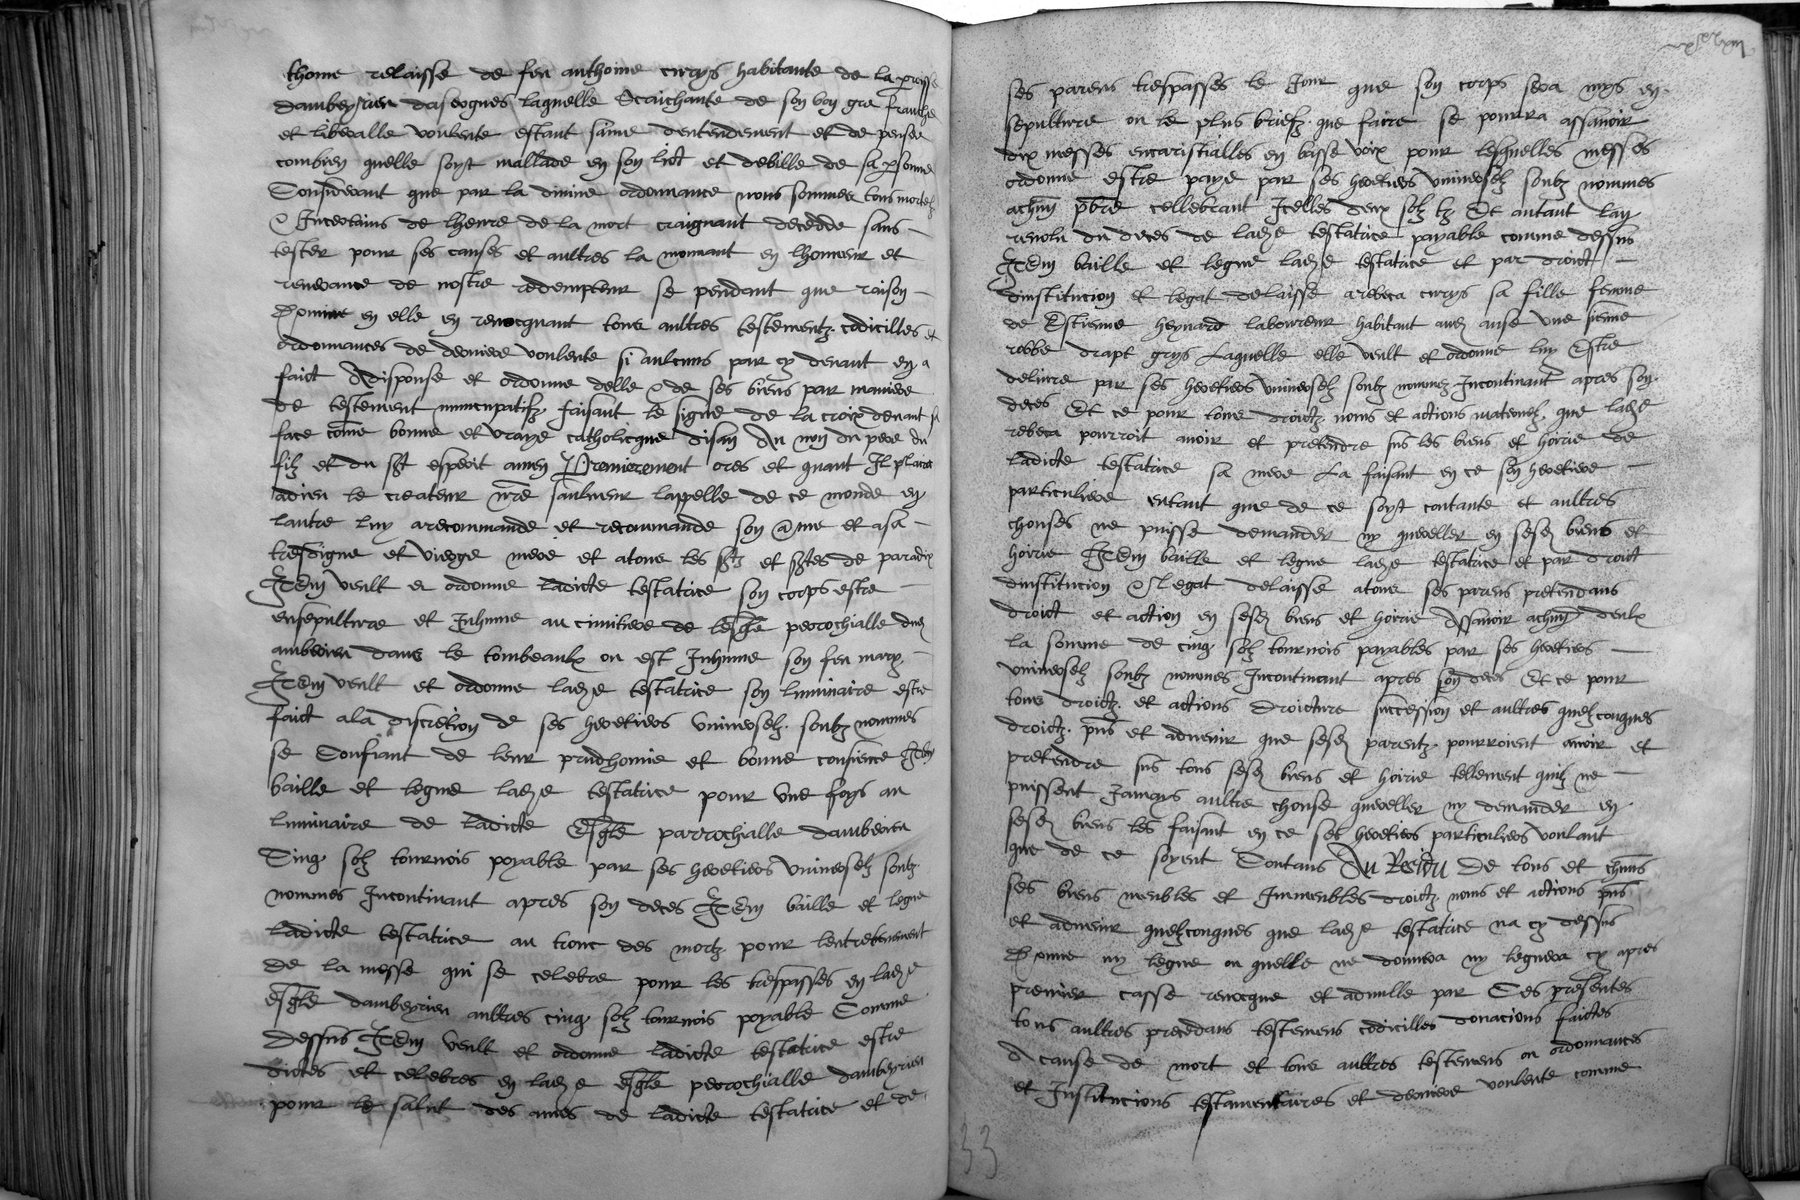 thome relaisse de feu anthoine curys habitante de la parroisse
dambeyrieu dasvognes laquelle Scaichante de son bon gre franche
et liberalle voulente estant saine dentendement et de pensee
combien quelle soyt mallade en son lict et debille de sa personne
Considerant que par la divine ordonnance nous sommes tous mortelz
& Incertains de lheure de la mort craignant decedde sans
tester pour ses causes et aultres la mouvant en lhonneur et
reverance de nostre redempteur se pendant que raison
Domine en elle en revocquant tous aultres testementz codicilles et
ordonnances de derniere voulente si aulcuns par cy devant en a
faict A disponse et ordonne delle & de ses biens par maniere
de testement nuncupatifz faisant le signe de la croix devant sa
face come bonne et vraye catholicque disan Au non du pere du
filz et du sainct esperit amen Premierement ores et quant Il plaira
adieu le createur nre saulveur lappelle de ce monde en
lautre luy a recommande et recommande son ame et a sa
tresdigne et vierge mere et a tous les sctz et sctes de paradix
Item veult et ordonne ladicte testatrice son corps estre
ensepulture et Inhume au cimitiere de lesgle perrochialle dud
ambeirieu dans le tombeaulx ou est Inhume son feu mary
Item veult et ordonne lade testatrice son luminaire estre
faict a la discretion de ses heretiers universelz soubz nommes
se Confiant de leur prudhomie et bonne consience Item
baille et legue lade testatrice pour une foys au
luminaire de ladicte Esgle parrochialle dambeirieu
Cinq solz tournois poyable par ses heretiers universelz soubz
nommes Incontinant apres son deces Item baille et legue
ladicte testatrice au tronc des mortz pour lentretenement
de la messe qui se celebre pour les trespasses en lade
esgle dambeyrieu aultres cinq solz tournois poyable Comme
dessus Item veult et ordonne ladicte testatrice estre
dictes et celebres en lade esgle perrochialle dambeyrieu
pour le salut des ames de ladicte testatrice et de
ses parens trespasses le Jour que son corps sera mys en
sepulture ou le plus briefz que faire se pourra assavoir
dix messes eucaristialles en basse voix pour lesquelles messes
ordonne estre paye par ses heretiers universelz soubz nommes
a chun pbre cellebrant Icelles deux solz tz Et autant lan
revolu du deces de lade testatrice payable comme dessus
Item baille et legue lade testatrice et par droict
dinstitucion et legat delaisse a rebeca curys sa fille femme
de Estienne heynard laboureur habitant aud anse une sienne
robbe drapt grys Laquelle elle veult et ordonne luy Estre
delivre par ses heretiers universelz soubz nommez Incontinant apres son
deces Et ce pour tous droictz noms et actions maternelz que lade
rebeca pourroit avoir et pretendre sus les biens et hoirie de
ladicte testatrice sa mere La faisant en ce son heretiere
particuliere entant que de ce soyt contante et aultres
chouses ne puisse demander ny quereller en sesd biens et
hoirie Item baille et legue lade testatrice et par droict
dinstitucion & legat delaisse a tous ses parens pretendans
droict et action en sesd biens et hoirie Assavoir a chun deulx
la somme de cinq solz tournois payables par ses heretiers
universelz soubz nommes Incontinant apres son deces Et ce pour
tous droictz et actions droicture succession et aultres quelzconques
droictz pns et advenir que sesd parentz pourroient avoir et
pretendre sus tous sesd biens et hoirie tellement quilz ne
puissent Jamays aultre chouse quereller ny demander en
sesd biens les faisant en ce ses heretiers particuliers voulant
que de ce soyent Contans Au Residu De tous et chuns
ses biens meubles et Immeubles droictz noms et actions pns
et advenir quelzconques que lade testatrice na cy dessus
Donne ny legue ou quelle ne donnera ny leguera cy apres
premier casse revocque et adnulle par Ces presentes
tous aultres precedans testemens codicilles donacions faictes
A cause de mort et tous aultres testemens ou ordonnances
et Institucions testamentaires et derniere voulente comme
33